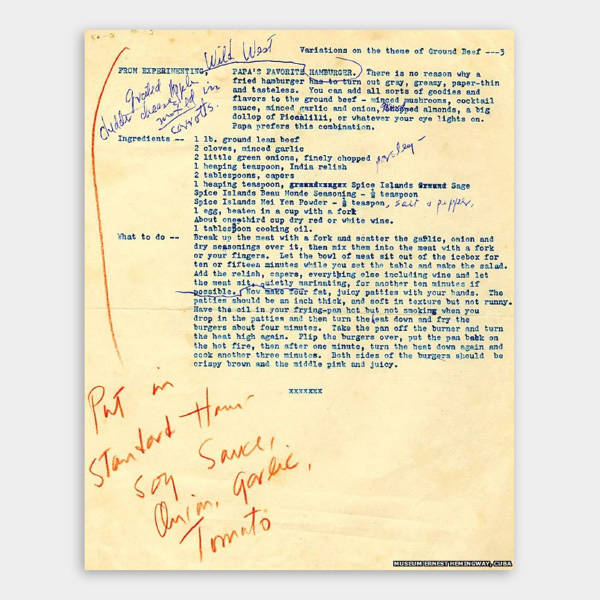 Variations on the theme of Ground Beef ---3
Wild West
FROM EXPERIMENTING, PAPA'S FAVORITE HAMBURGER. There is no reason why a
fried hamburger has to turn out gray, greasy, paper-thin
and tasteless. You can add all sorts of goodies and
flavors to the ground beef - minced mushrooms, cocktail
sauce, minced garlic and onion, chopped almonds, a big
dollop of Piccalilli, or whatever your eye lights on.
Papa prefers this combination.
grated apple
cheese
mixed in
carrots.
Ingredients -- 1 lb. ground lean beef
2 cloves, minced garlic
2 little green onions, finely chopped parsley -
1 heaping teaspoon, India relish
2 tablespoons, capers
1 heaping teaspoon, Spice Islands Sage
Spice Islands Beau Monde Seasoning - ½ teaspoon
Spice Islands Mei Yen Powder - ½ teaspoon, salt & pepper,
1 egg, beaten in a cup with a fork
About one third cup dry red or white wine.
1 tablespoon cooking oil.
What to do -- Break up the meat with a fork and scatter the garlic, onion and
dry seasonings over it, then mix them into the meat with a fork
or your fingers. Let the bowl of meat sit out of the icebox for
ten or fifteen minutes while you set the table and make the salad.
Add the relish, capers, everything else including wine and let
the meat sit, quietly marinating, for another ten minutes if
possible. Now make four fat, juicy patties with your hands. The
patties should be an inch thick, and soft in texture but not runny.
Have the oil in your frying-pan hot but not smoking when you
drop in the patties and then turn the heat down and fry the
burgers about four minutes. Take the pan off the burner and turn
the heat high again. Flip the burgers over, put the pan back on
the hot fire, then after one minute, turn the heat down again and
cook another three minutes. Both sides of the burgers should be
crispy brown and the middle pink and juicy.
xxxxxxx
Put in
Standard Ham-
Soy Sauce,
Onion, Garlic,
Tomato
MUSEUM ERNEST HEMINGWAY, CUBA